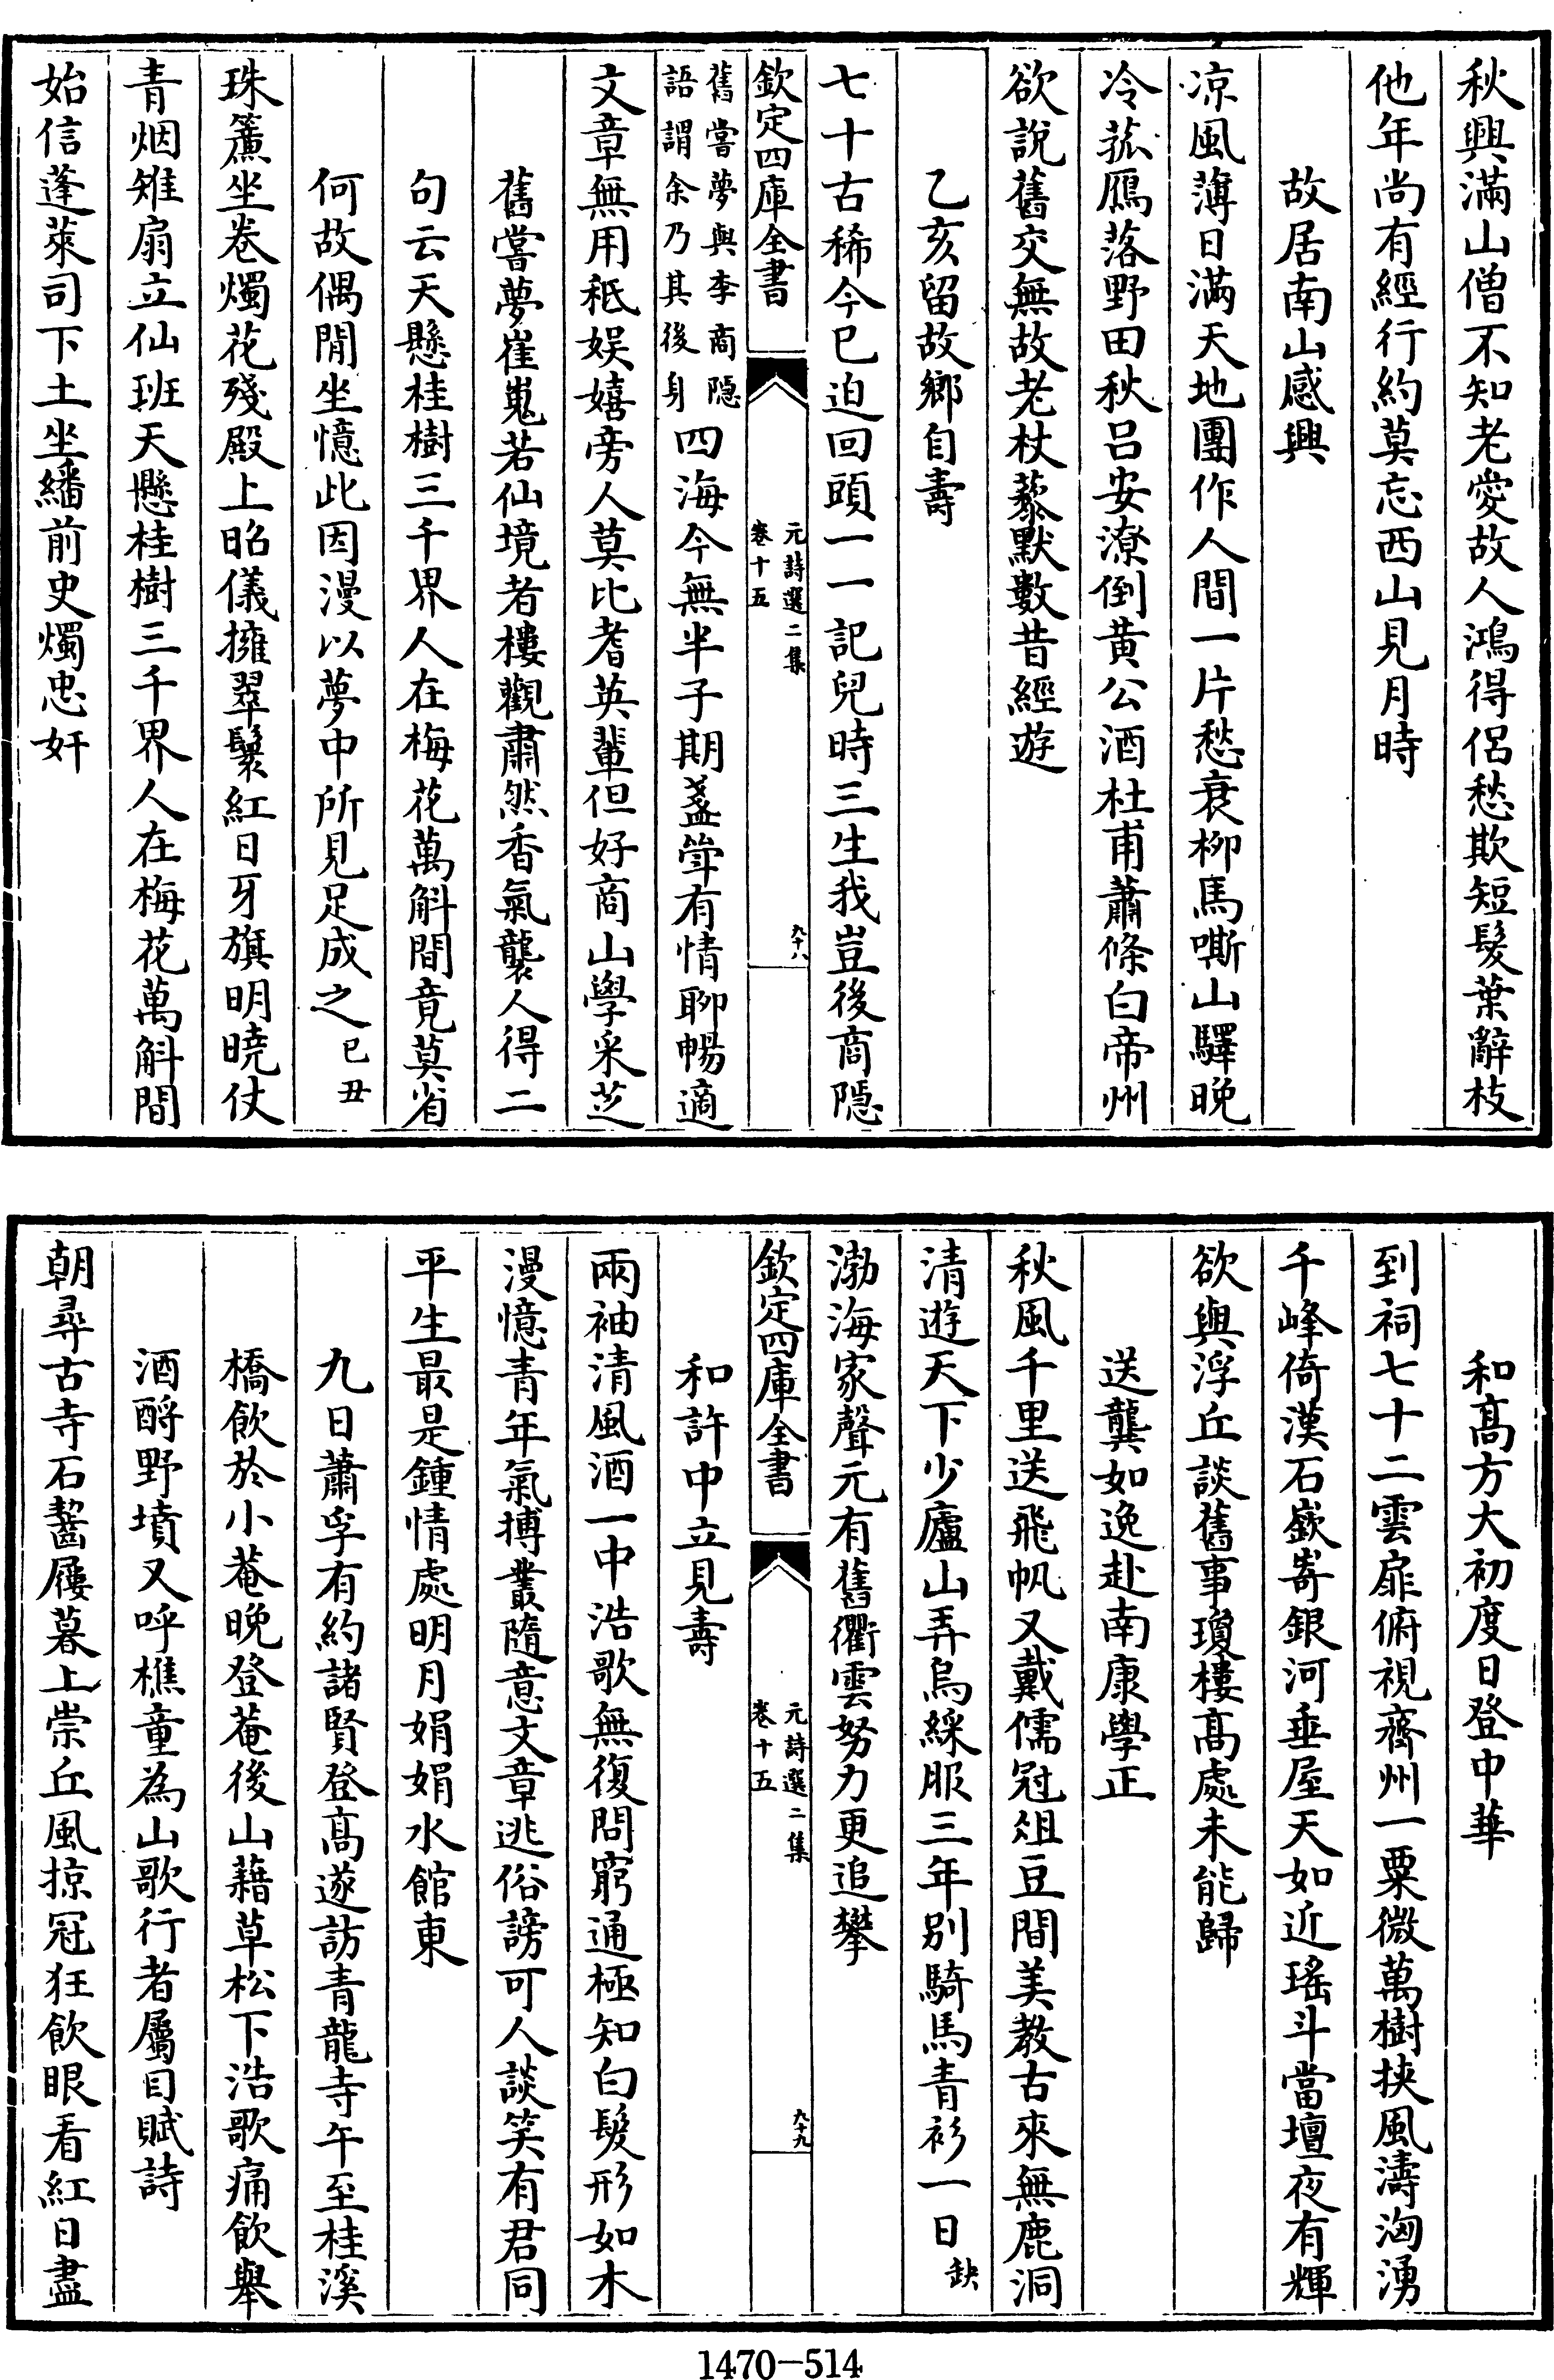 秋興滿山僧不知老愛故人鴻得侶愁欺短髮葉辭枝
他年尚有經行約莫忘西山見月時
故居南山感興
凉風薄日滿天地團作人間一片愁衰柳馬嘶山驛晚
冷菰鴈落野田秋呂安潦倒黄公酒杜甫蕭條白帝州
欲說舊交無故老杖藜默數昔經遊
乙亥留故鄉自壽
七十古稀今已迫回頭一一記兒時三生我豈後商隱
欽定四庫全書
元詩選二集
卷十五
九十八
舊嘗夢與李商隱
語謂余乃其後身
四海今無半子期盞䇓有情聊暢適
文章無用秪娱嬉旁人莫比耆英輩但好商山學采芝
舊嘗夢崔嵬若仙境者樓觀肅然香氣襲人得二
句云天懸桂樹三千界人在梅花萬斛間竟莫省
何故偶閒坐憶此因漫以夢中所見足成之已丑
珠簾坐卷燭花殘殿上昭儀擁翠鬟紅日牙旗明曉仗
青烟雉扇立仙班天懸桂樹三千界人在梅花萬斛間
始信蓬萊司下土坐繙前史燭忠奸
和髙方大初度日登中華
到祠七十二雲扉俯視齊州一粟微萬樹挟風濤洶湧
千峰倚漢石嶔嵜銀河垂屋天如近瑤斗當壇夜有輝
欲與浮丘談舊事瓊樓髙處未能歸
送龔如逸赴南康學正
秋風千里送飛帆又戴儒冠俎豆間美教古來無鹿洞
清遊天下少廬山弄烏綵服三年别騎馬青衫一日缺
渤海家聲元有舊衢雲努力更追攀
欽定四庫全書
元詩選二集
卷十五
九十九
和許中立見壽
兩袖清風酒一中浩歌無復問窮通極知白髮形如木
漫憶青年氣摶叢隨意文章逃俗謗可人談笑有君同
平生最是鍾情處明月娟娟水館東
九日蕭孚有約諸賢登髙遂訪青龍寺午至桂溪
橋飲於小菴晚登菴後山藉草松下浩歌痛飲舉
酒酹野墳又呼樵童為山歌行者屬目賦詩
朝尋古寺石齧屨暮上崇丘風掠冠狂飲眼看紅日盡
1470-514